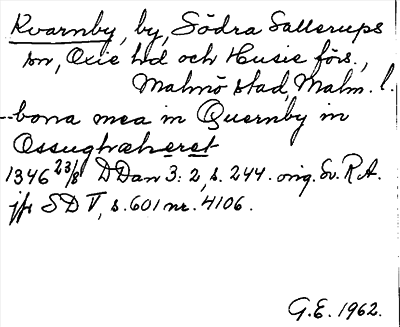 Kvarnby, by, Södra Sallerups
sn, Oxie hd och Husie förs.,
Malmö stad, Malm. l.
--bona mea in Quernby in
Ossughæheret
1346 23/8 DDan 3: 2, s. 244. orig. Sv. R.A.
jfr SD V, s. 601 nr. 4106.
G.E. 1962.